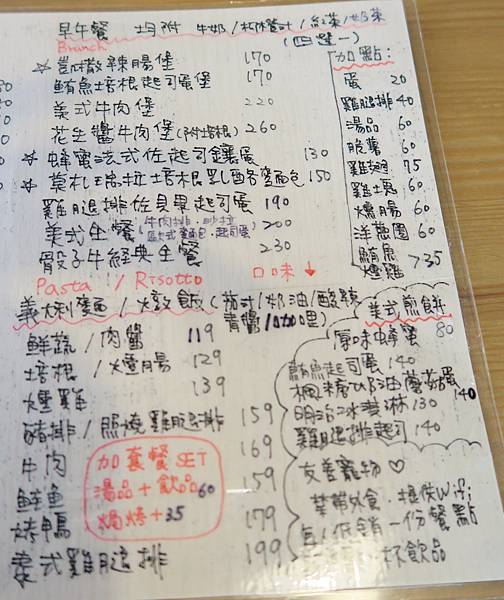 早午餐 均附 牛奶/柳橙汁/紅茶/奶茶
Brunch (四選一)
☆凱撒辣腸堡 170
鮪魚培根起司蛋堡 170
美式牛肉堡 220
花生醬牛肉堡(附培根) 260
☆蜂蜜法式佐起司鑲蛋 130
☆莫札瑞拉培根乳酪麵包 150
雞腿排佐貝果起司蛋 190
美式全餐(牛肉排.沙拉 歐式麵包.起司蛋) 200
骰子牛經典全餐 230
加點:
蛋 20
雞腿排 40
湯品 60
脆薯 60
雞翅 75
雞塊 60
燻腸 60
洋蔥圈 60
鮪魚
燻雞 >35
Pasta / Risotto 口味↓
義大利麵/燉飯(茄汁/奶油/酸辣
青醬/咖哩)
鮮蔬/肉醬 119
培根/燻腸 129
燻雞 139
豬排/照燒雞腿排 159
牛肉 169
鮭魚 159
烤鴨 179
美式雞腿排 199
加套餐SET
湯品+飲品60
焗烤+35
美式煎餅
原味蜂蜜 80
鮪魚起司蛋 140
楓糖奶油蘑菇蛋 140
明治冰淇淋 130
雞腿排起司 140
友善寵物♡
禁帶外食.提供Wifi
每人低銷一份餐點
杯飲品